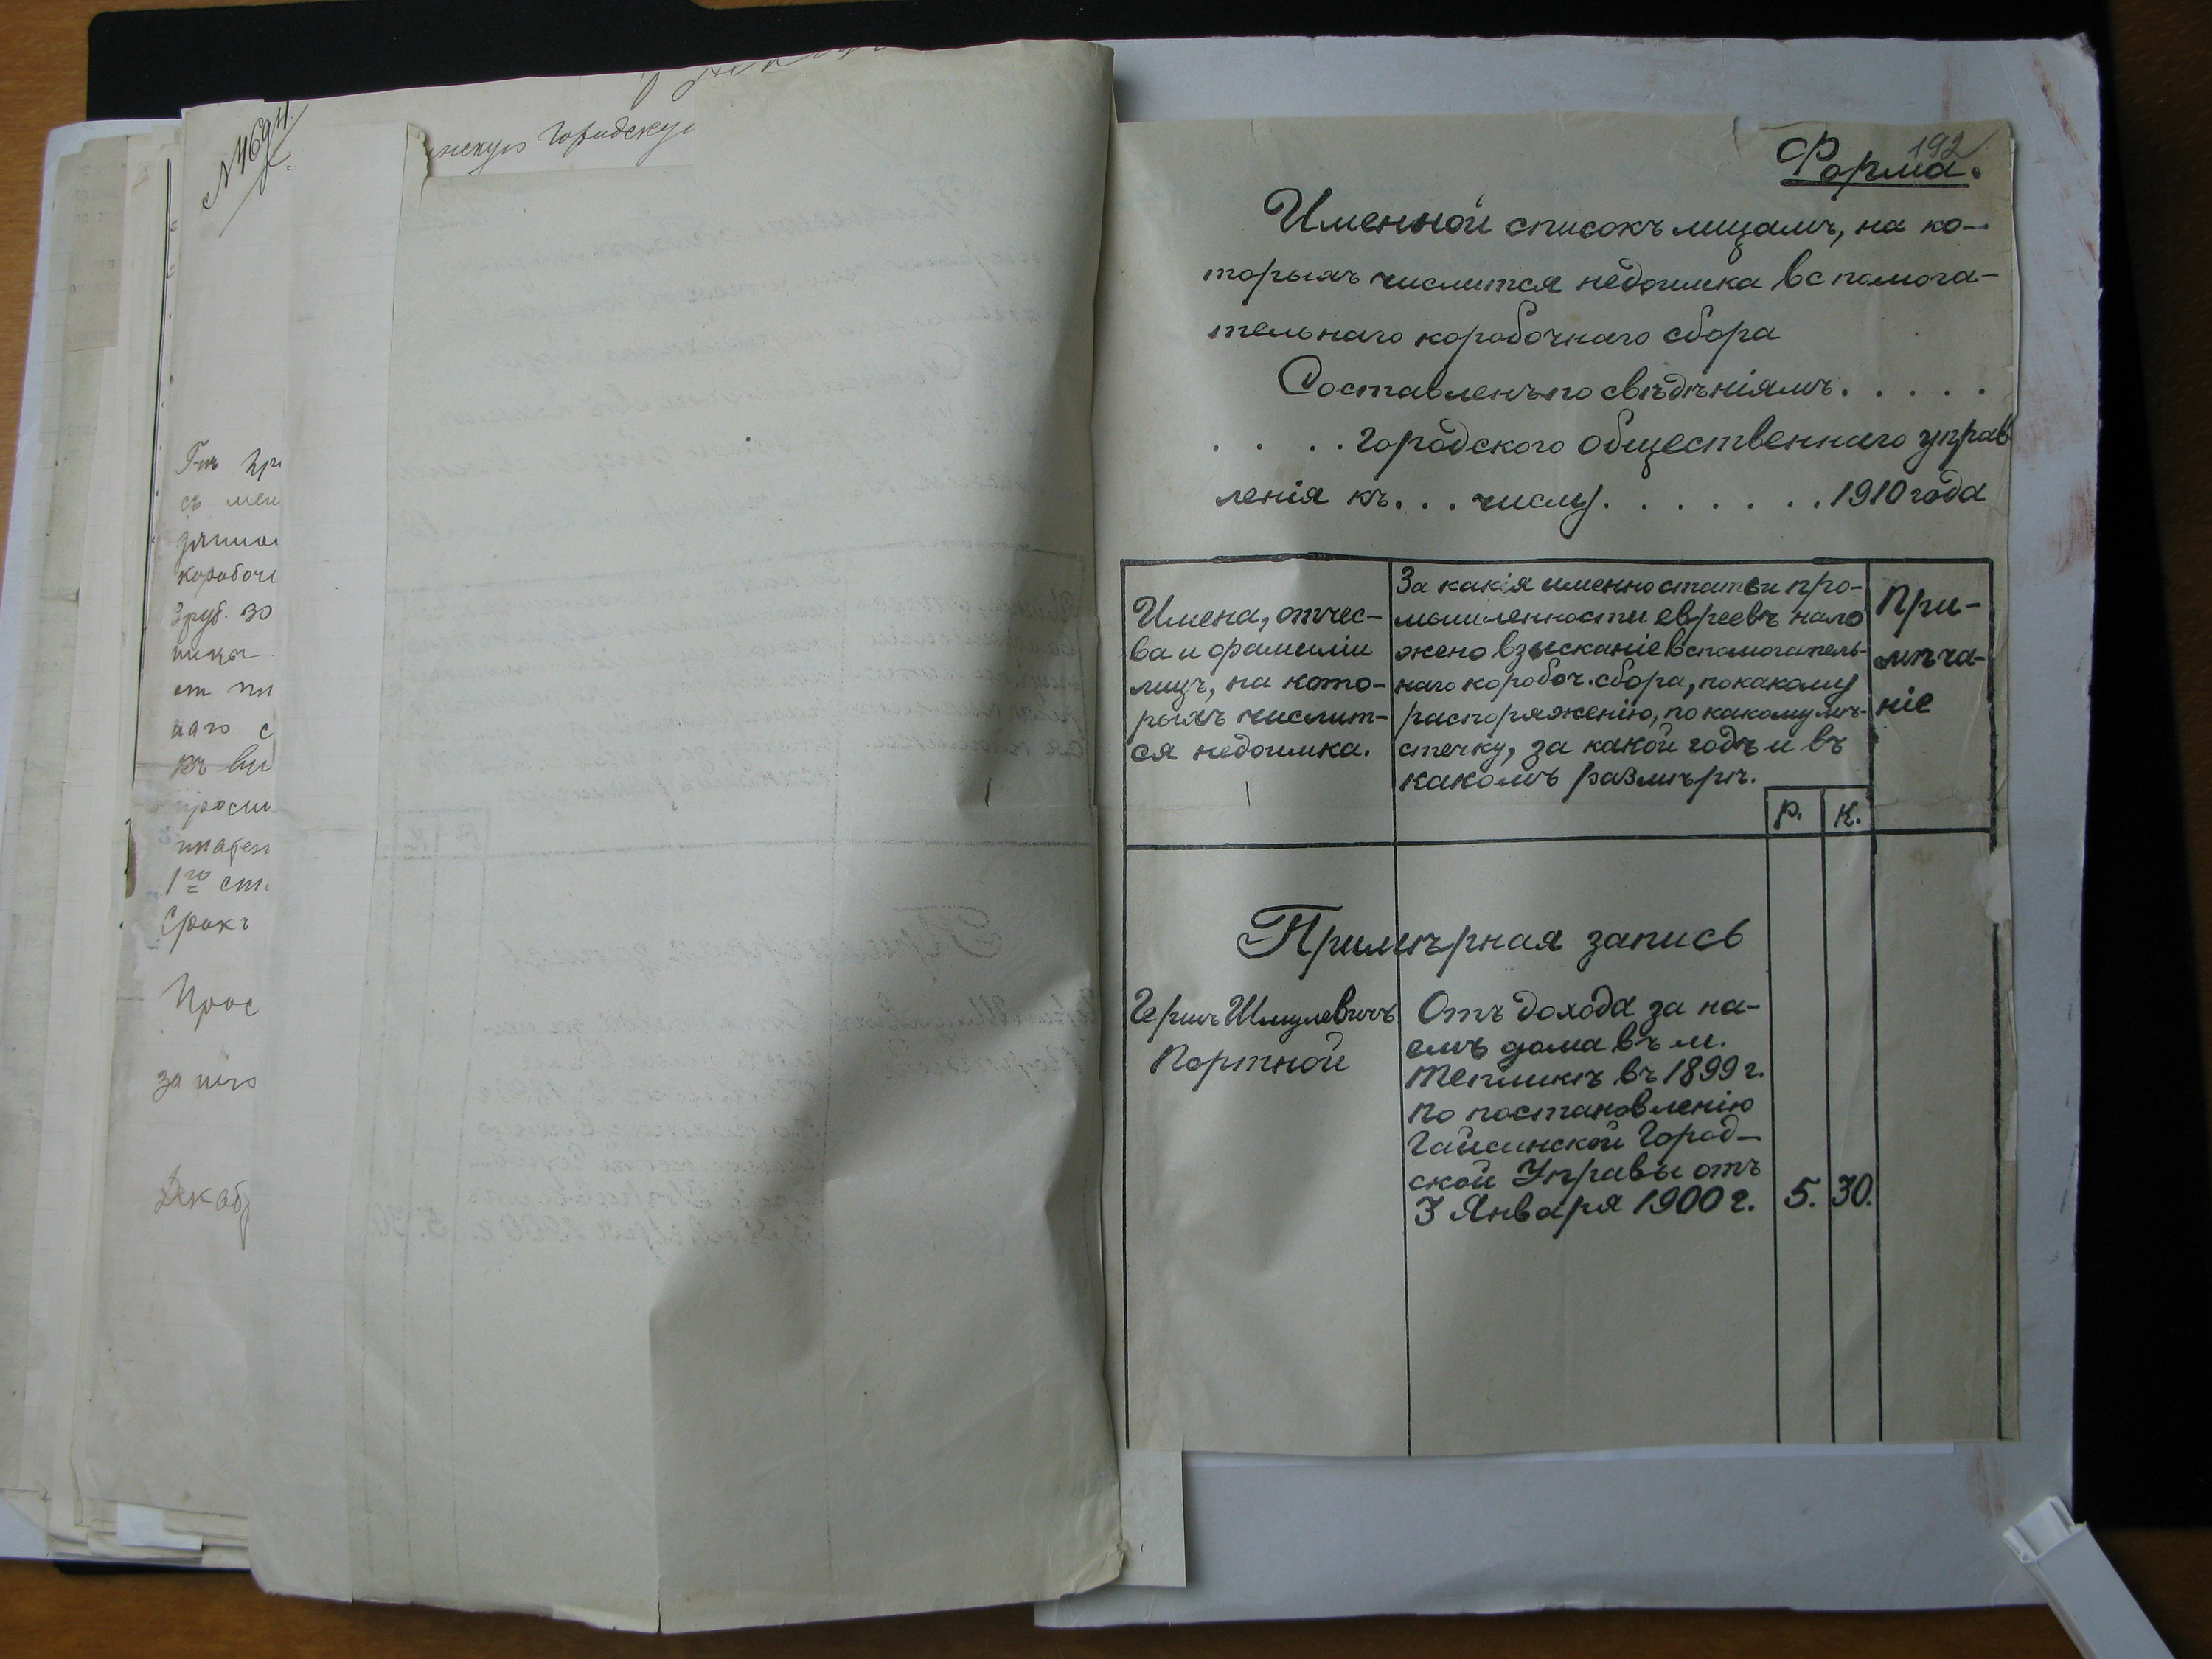 № 4694.
нскую Городскую
съ
коробочн
3 руб. 30
аго с
къ
1го
Срокъ
Прос
за
Декабр
192
Форма.
Именной списокъ лицамъ, на ко-
торыхъ числится недоимка вспомога-
тельнаго коробочнаго сбора
Составленъ по свѣдѣніямъ. . . . .
. . . . городского общественнаго управ
ленія къ. . . числу. . . . . . . 1910 года
Имена, отчес-
ва и фамиліи
лицъ, на кото-
рыхъ числит-
ся недоимка.
За какія именно статьи про-
мышленности евреевъ нало
жено взысканіе вспомогатель-
наго короботч. сбора, по какому
распоряженію, по какому мѣ-
стечку, за какой годъ и въ
какомъ размѣрѣ.
Р. К.
При-
мѣча-
ніе
Примѣрная запись
Гершъ Шмулевичъ
Портной
Отъ дохода за на-
емъ дома въ м.
Тепликѣ въ 1899 г.
по постановленію
Гайсинской Город-
ской Управы отъ
3 Января 1900 г. 5. 30.